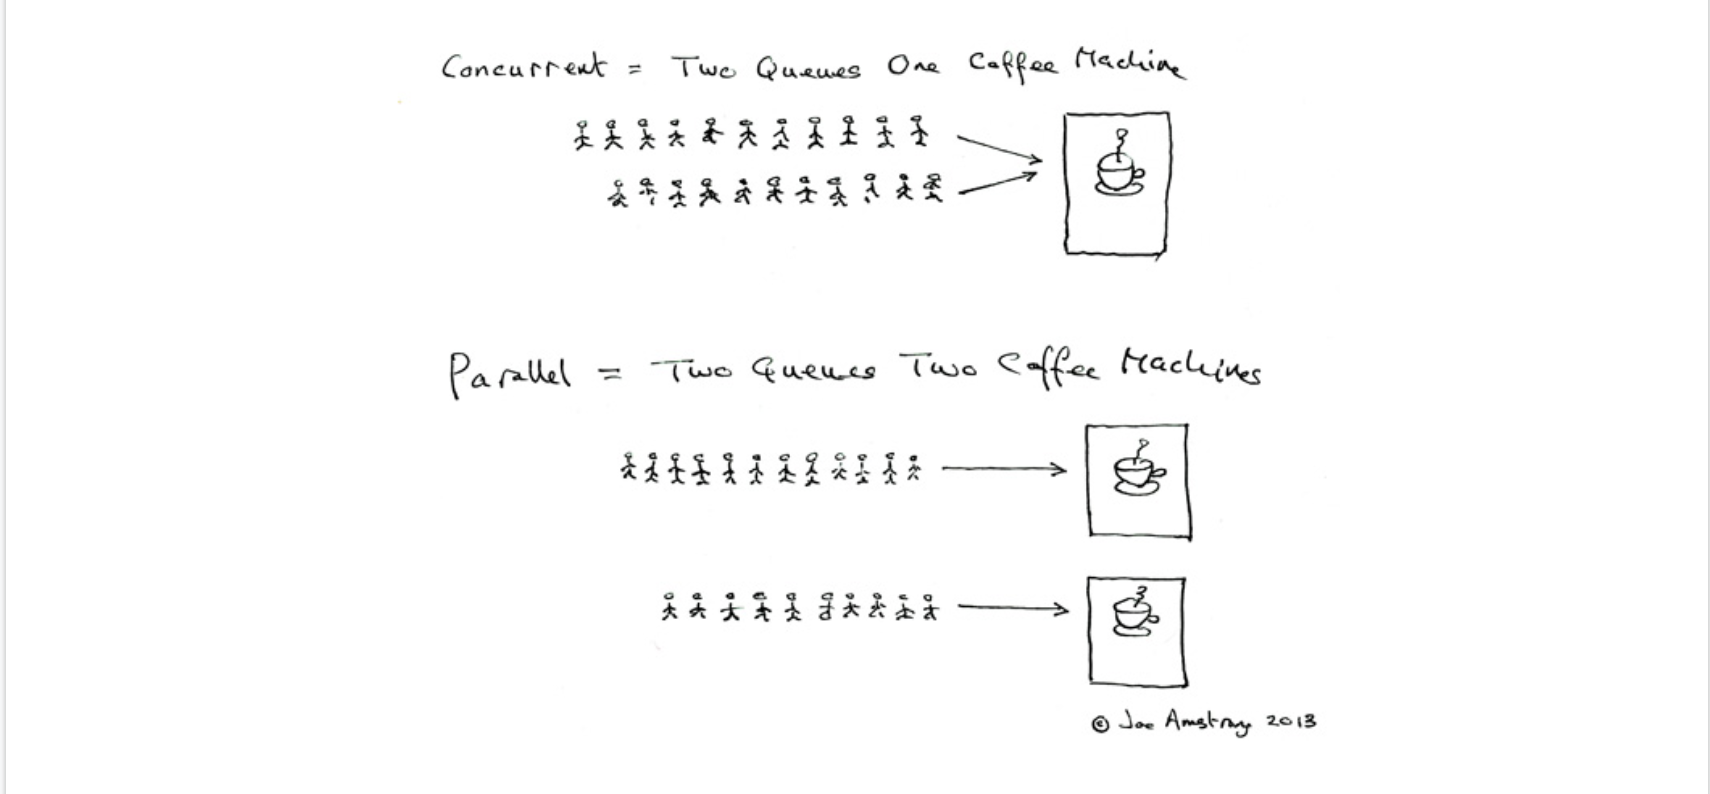 Concurrent = Two Queues One Coffee Machine
Parallel = Two Queues Two Coffee Machines
© Joe Amstrong 2013